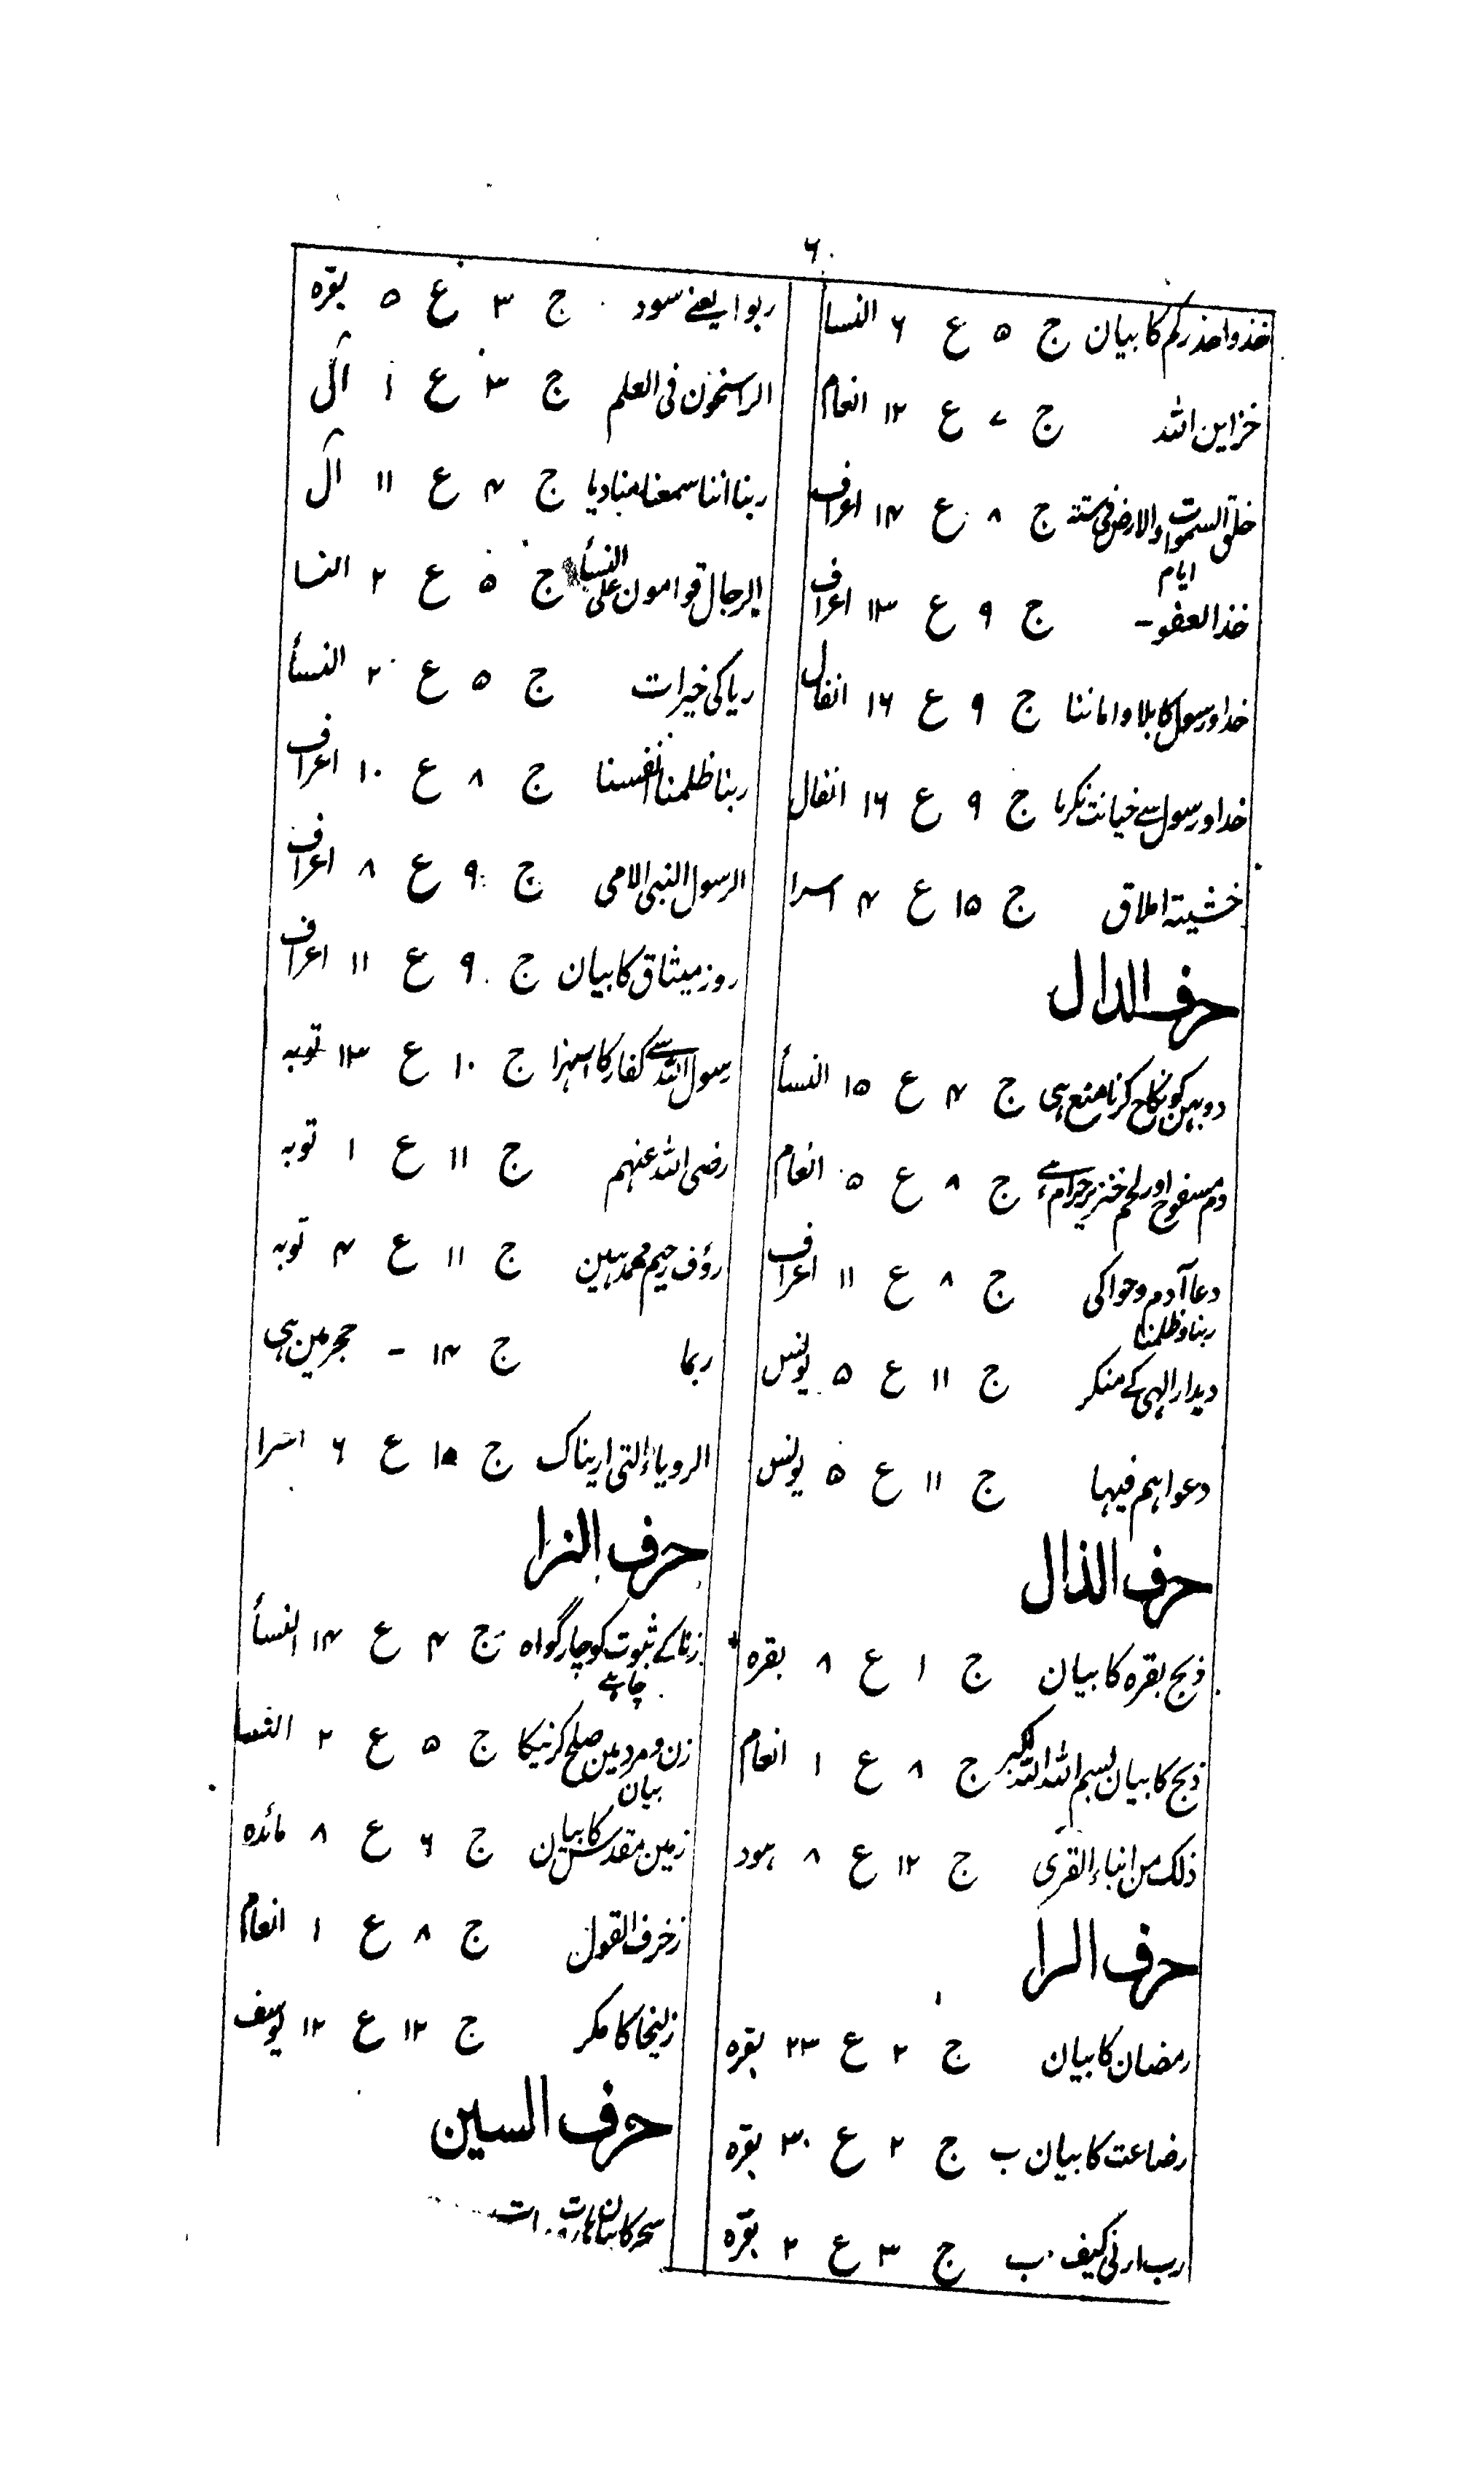 ۶
خذو احذرکم کا بیان ج ۵ ع ۶ النسا
خزاین اللہ ج ۷ ع ۱۲ انعام
خلق السموات والارض فی ستۃ ایام ج ۸ ع ۱۴ اعراف
خذ العفو - ج ۹ ع ۱۳ اعراف
خدا ورسول کا بلاوا ماننا ج ۹ ع ۱۶ انفال
خدا ورسول سے خیانت نکرنا ج ۹ ع ۱۶ انفال
خشیتہ املاق ج ۱۵ ع ۴ اسرا
حرف الدال
دو بہین کو نکاح کرنا منع ہی ج ۴ ع ۱۵ النسأ
دم مسفوح اور لحم خنزیر حرام ہے ج ۸ ع ۵ انعام
دعا آدم وحوا کی ج ۸ ع ۱۱ اعراف
ربنا ظلمنا
دیدار الہی کے منکر ج ۱۱ ع ۵ یونس
دعواہم فیہا ج ۱۱ ع ۵ یونس
حرف الذال
ذبح بقرہ کا بیان ج ۱ ع ۸ بقرہ
ذبح کا بیان بسم اللہ اللہ اکبر ج ۸ ع ۱ انعام
ذلک من انباء القری ج ۱۲ ع ۸ ہود
حرف الرا
رمضان کا بیان ج ۲ ع ۲۳ بقرہ
رضاعت کا بیان ب ج ۲ ع ۳۰ بقرہ
رب ارنی کیف ب ج ۳ ع ۲ بقرہ
ربوا یعنے سود ج ۳ ع ۵ بقرہ
الراسخون فی العلم ج ۳ ع ۱ آل
ربنا اننا سمعنا منادیا ج ۴ ع ۱۱ آل
الرجال قوامون علی النسأ ج ۵ ع ۲ النسا
ریا کی خیرات ج ۵ ع ۲ النسأ
ربنا ظلمنا انفسنا ج ۸ ع ۱۰ اعراف
الرسول النبی الامی ج ۹ ع ۸ اعراف
روز میثاق کا بیان ج ۹ ع ۱۱ اعراف
رسول اللہ سے کفار کا استہزا ج ۱۰ ع ۱۳ توبہ
رضی اللہ عنہم ج ۱۱ ع ۱ توبہ
رؤف رحیم محمد ہین ج ۱۱ ع ۴ توبہ
ربما ج ۱۴ - حجر مین ہی
الرویاء التی اریناک ج ۱۵ ع ۶ اسرا
حرف الزا
زنا کے ثبوت کو چار گواہ ج ۴ ع ۱۴ النسأ
چاہیے
زن و مرد مین صلح کرنیکا ج ۵ ع ۲ النسا
بیان
زمین مقدس کا بیان ج ۶ ع ۸ مائدہ
زخرف القول ج ۸ ع ۱ انعام
زلیخا کا مکر ج ۱۲ ع ۱۲ یوسف
حرف السین
سحر کا بیان